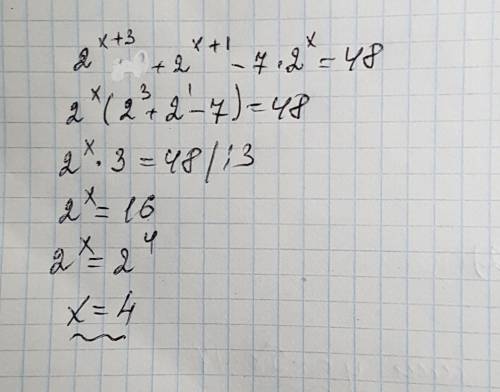 2^{x+3} + 2^{x+1} - 7 · 2^x = 48
2^x (2^3 + 2^1 - 7) = 48
2^x · 3 = 48 / : 3
2^x = 16
2^x = 2^4
x = 4